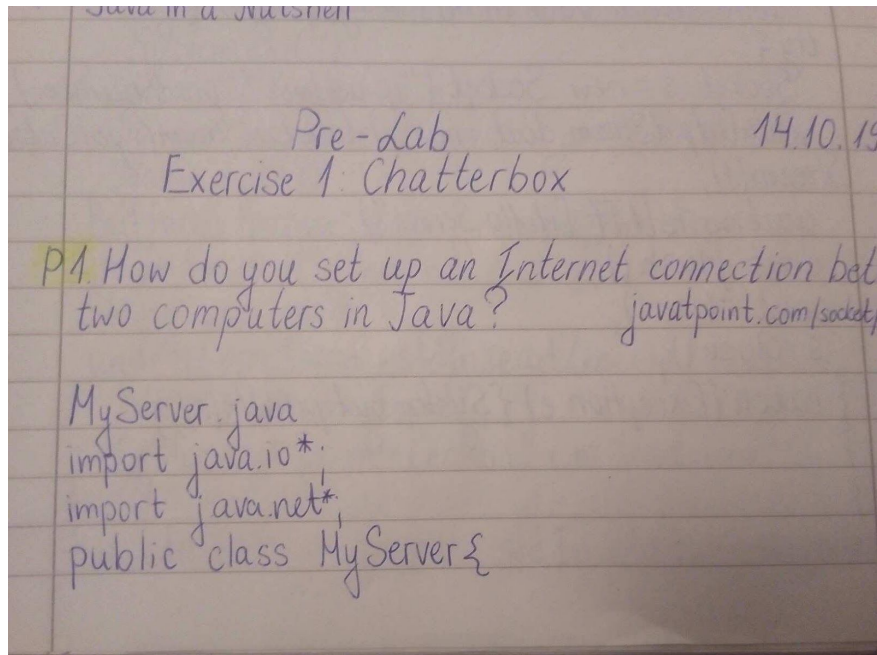 Java in a Nutshell
Pre-Lab 14.10.19
Exercise 1: Chatterbox
P1. How do you set up an Internet connection bet
two computers in Java? javatpoint.com/socket
MyServer.java
import java.io*;
import java.net*;
public class MyServer{